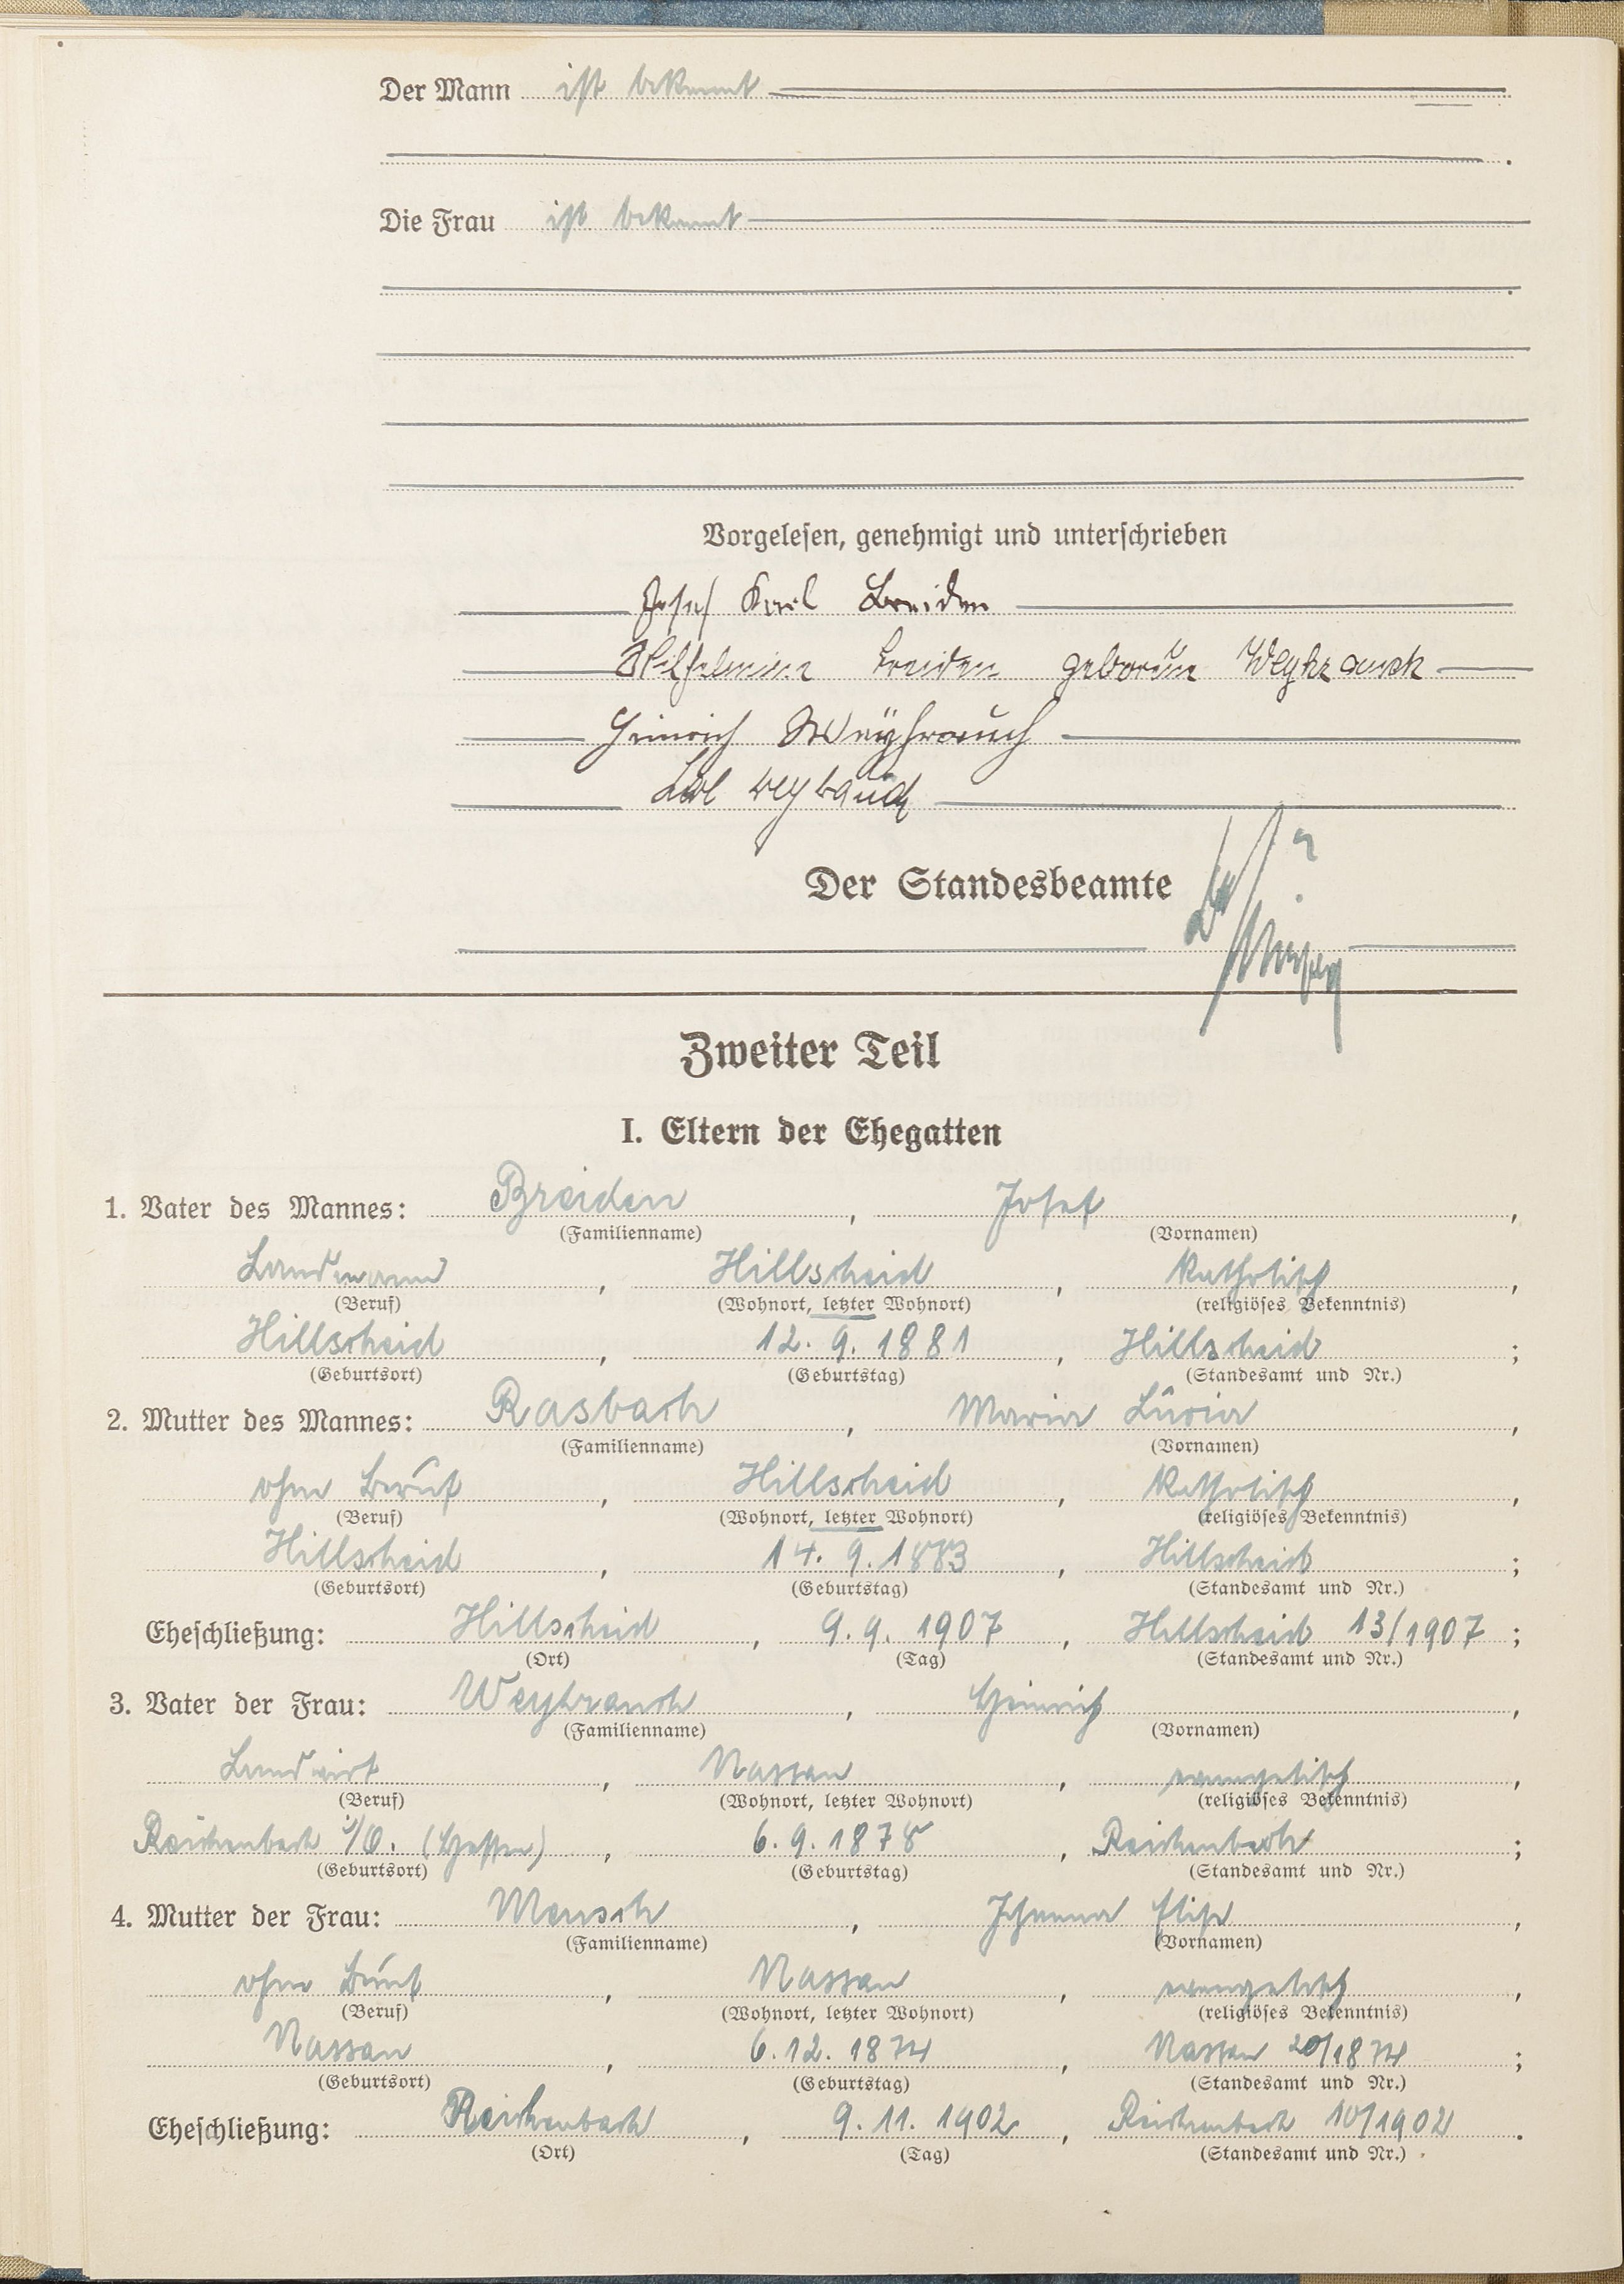 Der Mann ist bekannt
Die Frau ist bekannt
Vorgelesen, genehmigt und unterschrieben
Josef Karl Breiden
Wilhelmine Breiden geborene Weyhrauch
Heinrich Weyhrauch
Karl Weyrauch
Der Standesbeamte
Zweiter Teil
I. Eltern der Ehegatten
1. Vater des Mannes: Breiden, Josef,
(Familienname) (Vornamen)
Landmann, Hillscheid, katholisch,
(Beruf) (Wohnort, letzter Wohnort) (religiöses Bekenntnis)
Hillscheid, 12. 9. 1881, Hillscheid;
(Geburtsort) (Geburtstag) (Standesamt und Nr.)
2. Mutter des Mannes: Rasbach, Maria Lucia,
(Familienname) (Vornamen)
ohne Beruf, Hillscheid, katholisch,
(Beruf) (Wohnort, letzter Wohnort) (religiöses Bekenntnis)
Hillscheid, 14. 9. 1883, Hillscheid;
(Geburtsort) (Geburtstag) (Standesamt und Nr.)
Eheschließung: Hillscheid, 9. 9. 1907, Hillscheid 13/1907;
(Ort) (Tag) (Standesamt und Nr.)
3. Vater der Frau: Weyhrauch, Heinrich,
(Familienname) (Vornamen)
Landwirt, Nassau, evangelisch,
(Beruf) (Wohnort, letzter Wohnort) (religiöses Bekenntnis)
Reichenbach i/O. (Hessen), 6. 9. 1878, Reichenbach;
(Geburtsort) (Geburtstag) (Standesamt und Nr.)
4. Mutter der Frau: Mensch, Johanna Elise,
(Familienname) (Vornamen)
ohne Beruf, Nassau, evangelisch,
(Beruf) (Wohnort, letzter Wohnort) (religiöses Bekenntnis)
Nassau, 6. 12. 1874, Nassau 20/1874;
(Geburtsort) (Geburtstag) (Standesamt und Nr.)
Eheschließung: Reichenbach, 9. 11. 1902, Reichenbach 10/1902.
(Ort) (Tag) (Standesamt und Nr.)